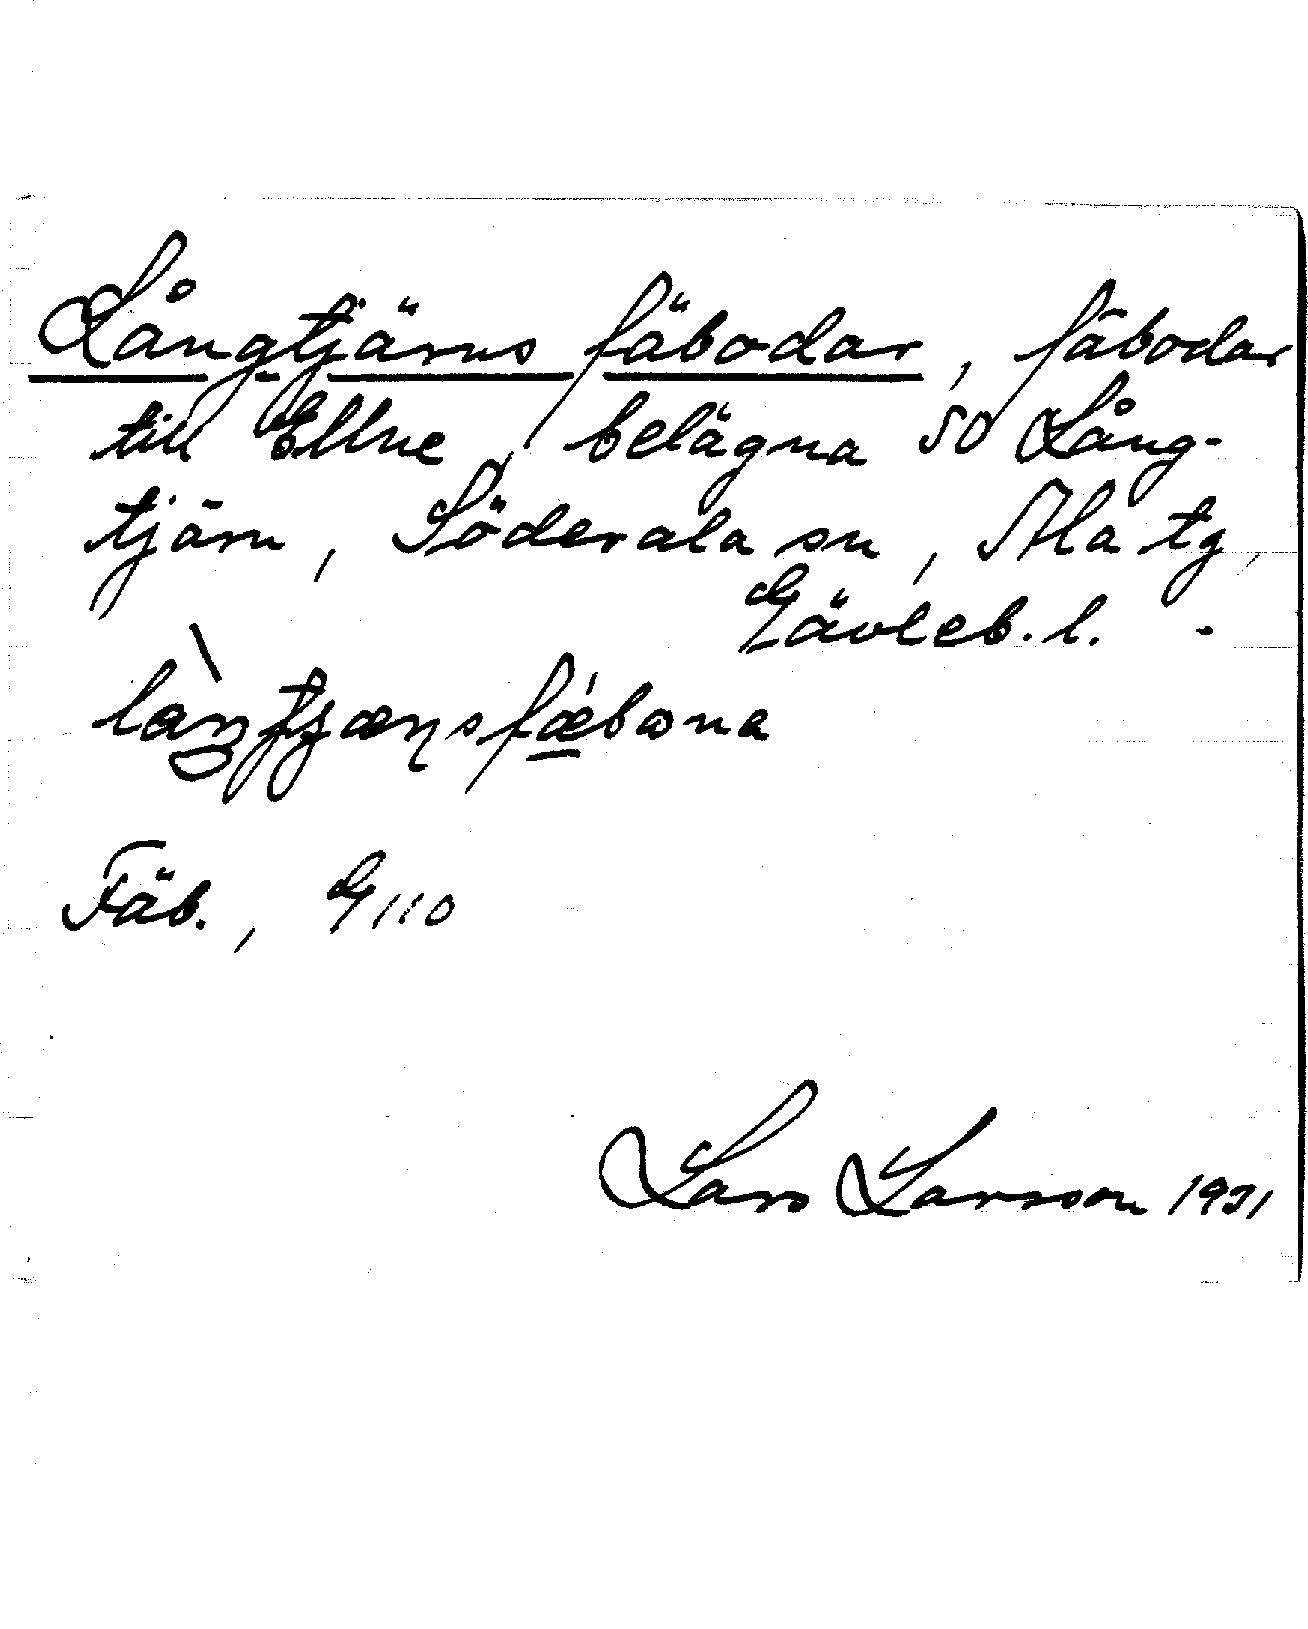 Långtjärns fäbodar, fäbodar
till Ellne, belägna SO Lång-
tjärn, Söderala sn, Ala tg,
Gävleb. l.
Fäb., G 110
Lars Larsson 1931